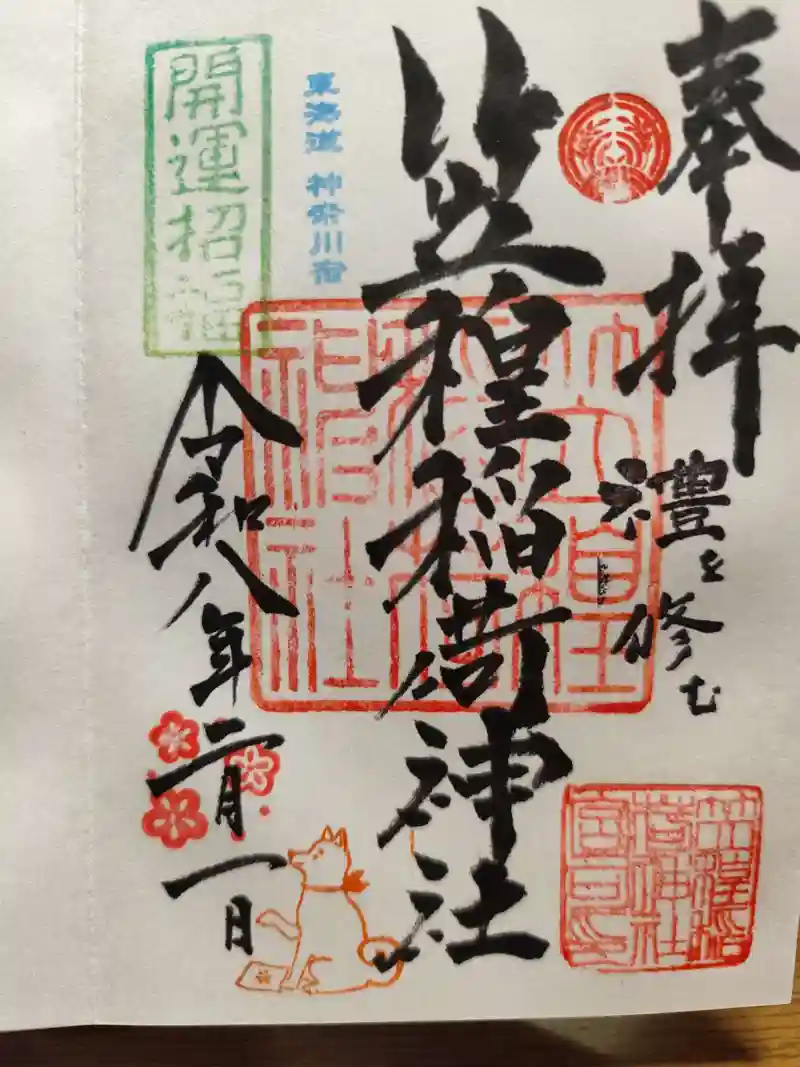 奉拝
禮を修む
笠䅣稲荷神社
東海道 神奈川宿
開運招福
令和八年二月一日
笠䅣
稲荷
神社
笠䅣稲
荷神社